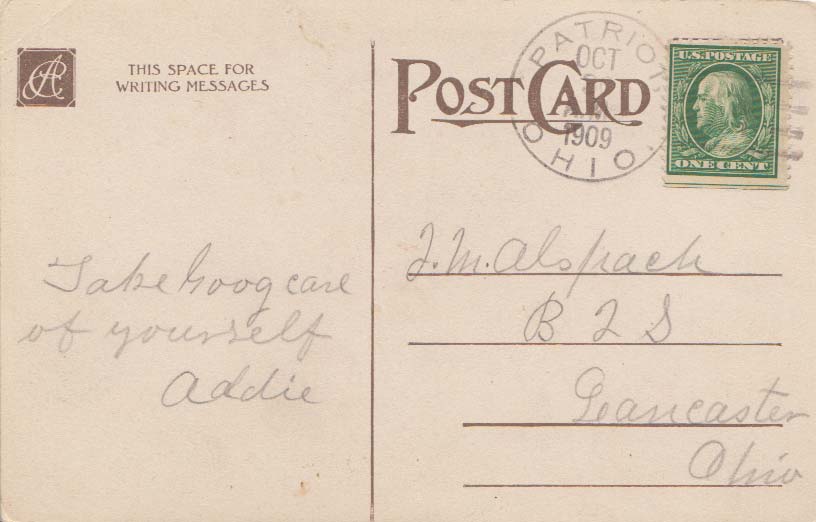 THIS SPACE FOR
WRITING MESSAGES
POST CARD
PATRIOT
OCT
1909
OHIO
U.S. POSTAGE
ONE CENT
Take Goog care
of yourself
Addie
J. M. Alspach
B 2 S
Lancaster
Ohio